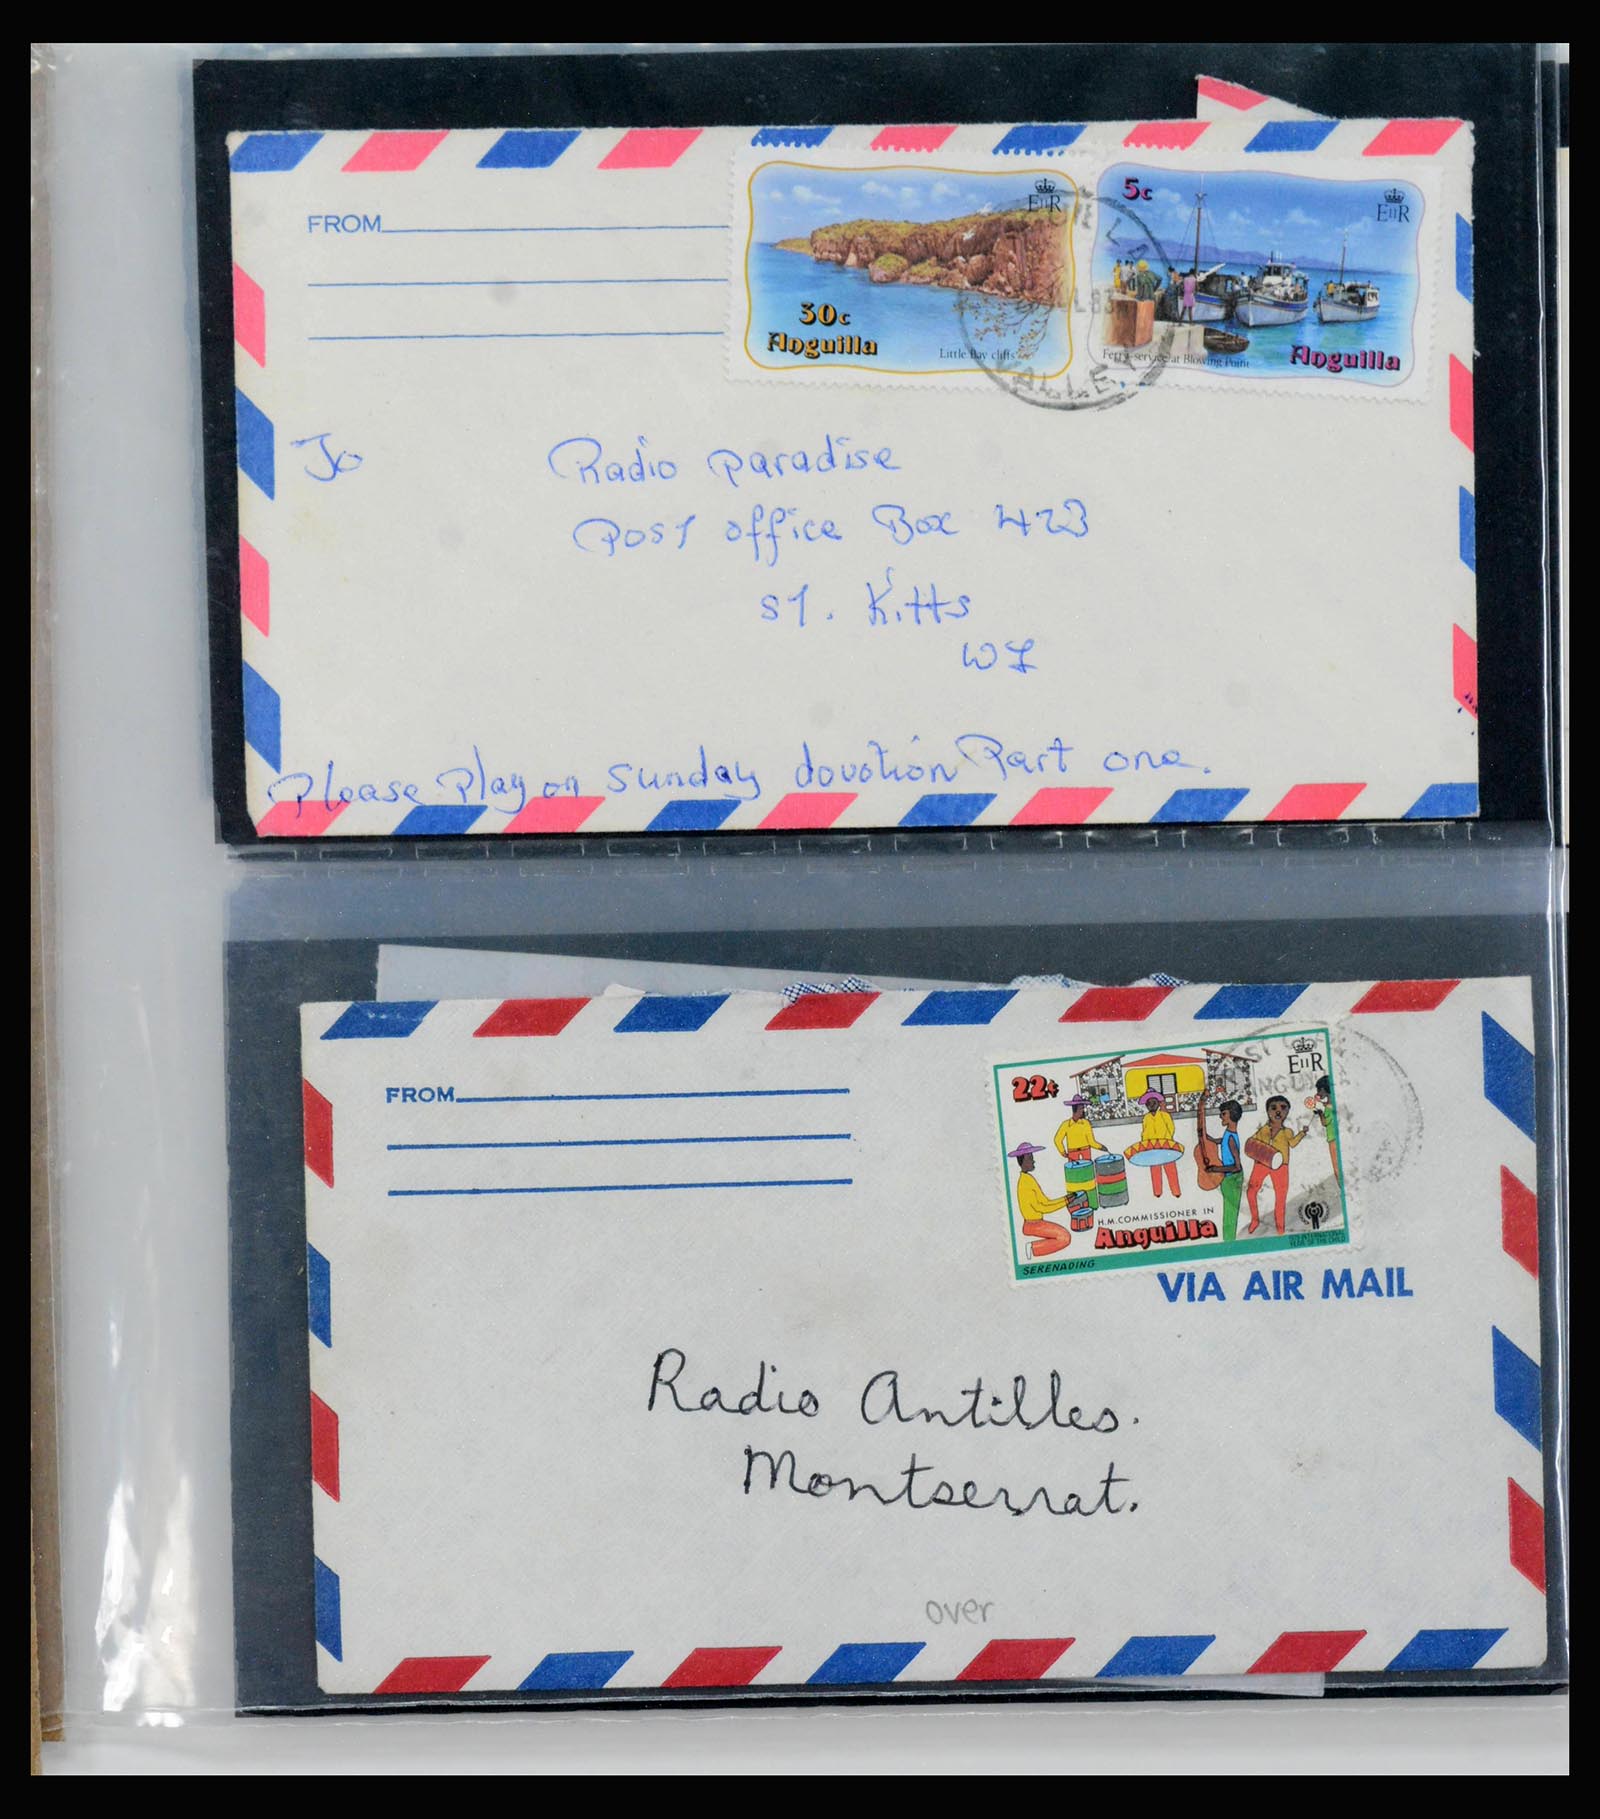 FROM
30c
Anguilla
Little Bay cliffs
EIIR
5c
EIIR
Ferry service at Blowing Point
Anguilla
VALLEY
To Radio Paradise
Post office Box 423
St. Kitts
WI
Please Play on Sunday dovotion Part one.
FROM
22¢
EIIR
H.M. COMMISSIONER IN
Anguilla
SERENADING
1979 INTERNATIONAL
YEAR OF THE CHILD
VIA AIR MAIL
Radio Antilles.
Montserrat.
over